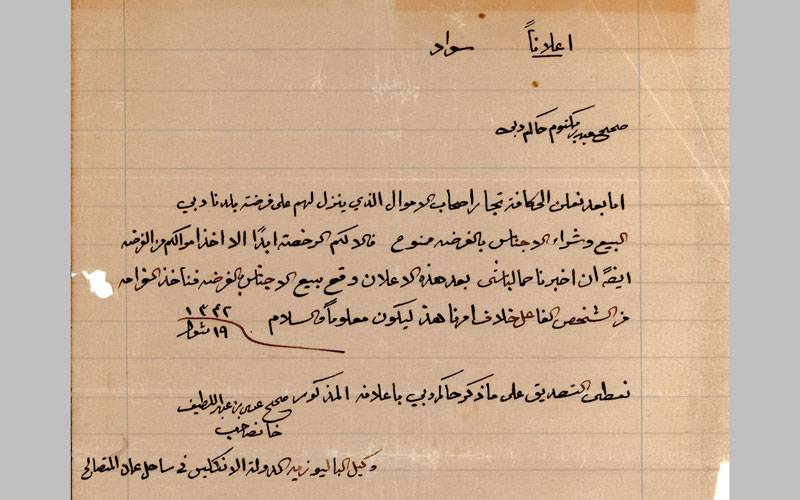 اعلاناً سواد
صحيح سعيد بن مكتوم حاكم دبي
اما بعد نعلن الى كافة تجار اصحاب الاموال الذي ينزل لهم على فرضته بلدنا دبي
البيع وشراء الاجناس بالفرضه ممنوع فالالكم الرخصته ابدًا الا اخذ اموالكم من الفرضه
ايضً ان اخبرنا حمالباشى بعد هذه الاعلان وقع ببيع الاجناس بالفرضه فناخذ الغرامه
من الشخص الفاعل خلاف امرنا هذ ليكون معلوماً والسلام
١٣٤٢
١٩ شوال
نعطى التصديق على ما ذكر حاكم دبي باعلانه المذكور
صحيح عيسى بن عبد اللطيف
خانصاحب
وكيل الباليوزيه الدولة الانكليس في ساحل عمان المتصالح